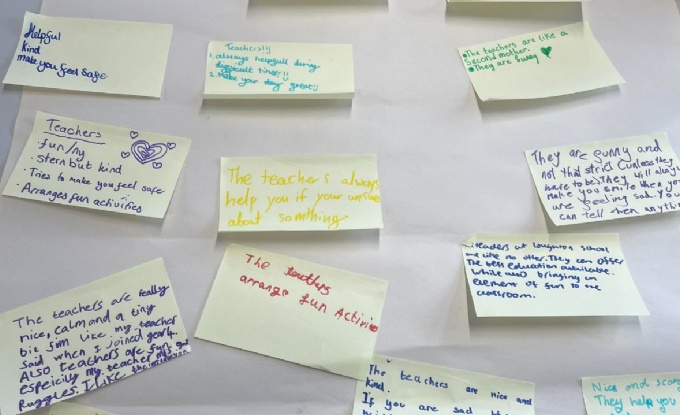 Helpful
kind
make you feel safe
Teachers!!
1. always helpfull during
difficult times!!
2. Make your day great!!
The teachers are like a
Second mother.
They are funny
Teachers
· fun/ny
· Stern but kind
· Tries to make you feel safe
· Arranges fun activities
The teachers always
help you if your unsure
about somthing
They are funny and
not that strict (unless they
have to be). They will always
make you smile when you
are feeling sad. You
can tell them anythin
at school
are like no other. They can offer
The best education available.
While also bringing an
element of fun to the
classroom.
The teachers are really
nice, calm and a tiny
bit like my teacher
said when I joined year 4.
Also teachers are fun
my teacher
I like the
The
arrange fun Activities
The teachers are nice and
kind.
If you are sad the
Nice and
They help you